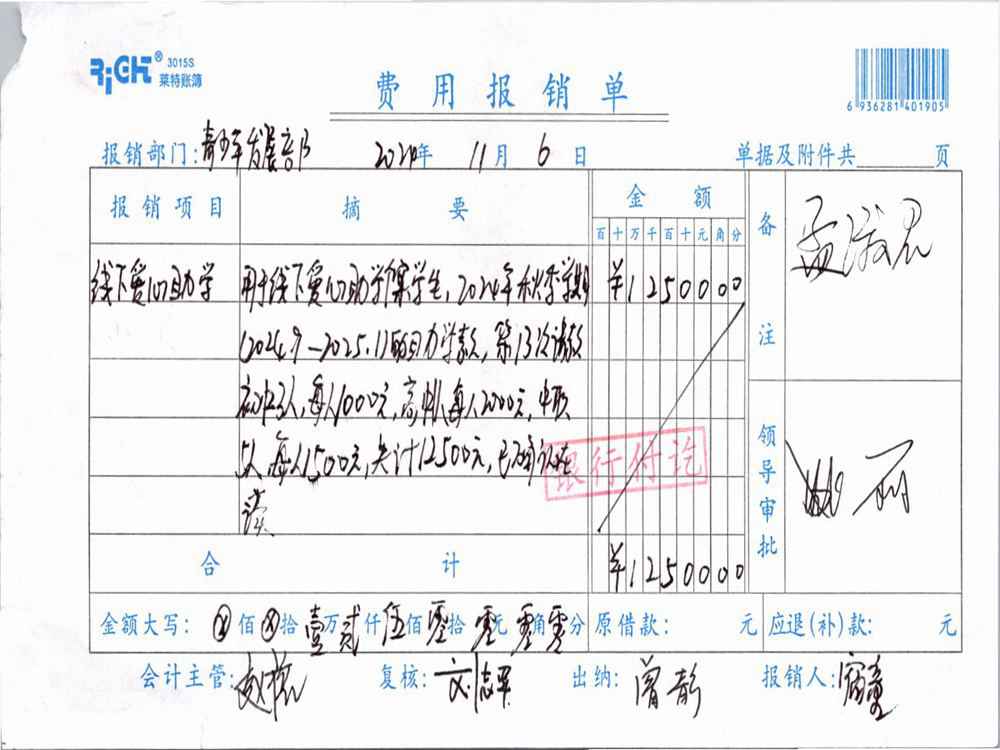 RiGHT® 3015S
莱特账簿
费用报销单
6 936281 401905
报销部门:青少年发展部 2024年 11月 6日 单据及附件共 页
报销项目 摘要 金额 备注
百十万千百十元角分
线下爱心助学 用于线下爱心助学 学生,2024年秋季学期 ¥1250000
(2024.9—2025.1)的助学款,第13次
初中3人,每人1000元,高中 人每人2000元,中职
5人,每人1500元,共计12500元,已确认在
读
银行付讫
领导审批
合计 ¥1250000
金额大写: ⊗佰⊗拾壹万贰仟伍佰零拾零元零角零分 原借款: 元 应退(补)款: 元
会计主管: 赵 复核: 文志军 出纳: 曾静 报销人: